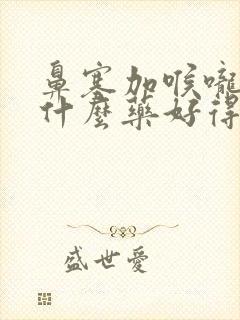 鼻塞加喉嚨
什麼藥好得
盛世愛